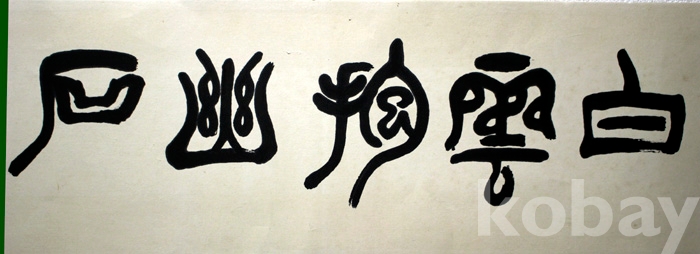 白雲抱幽石
kobay